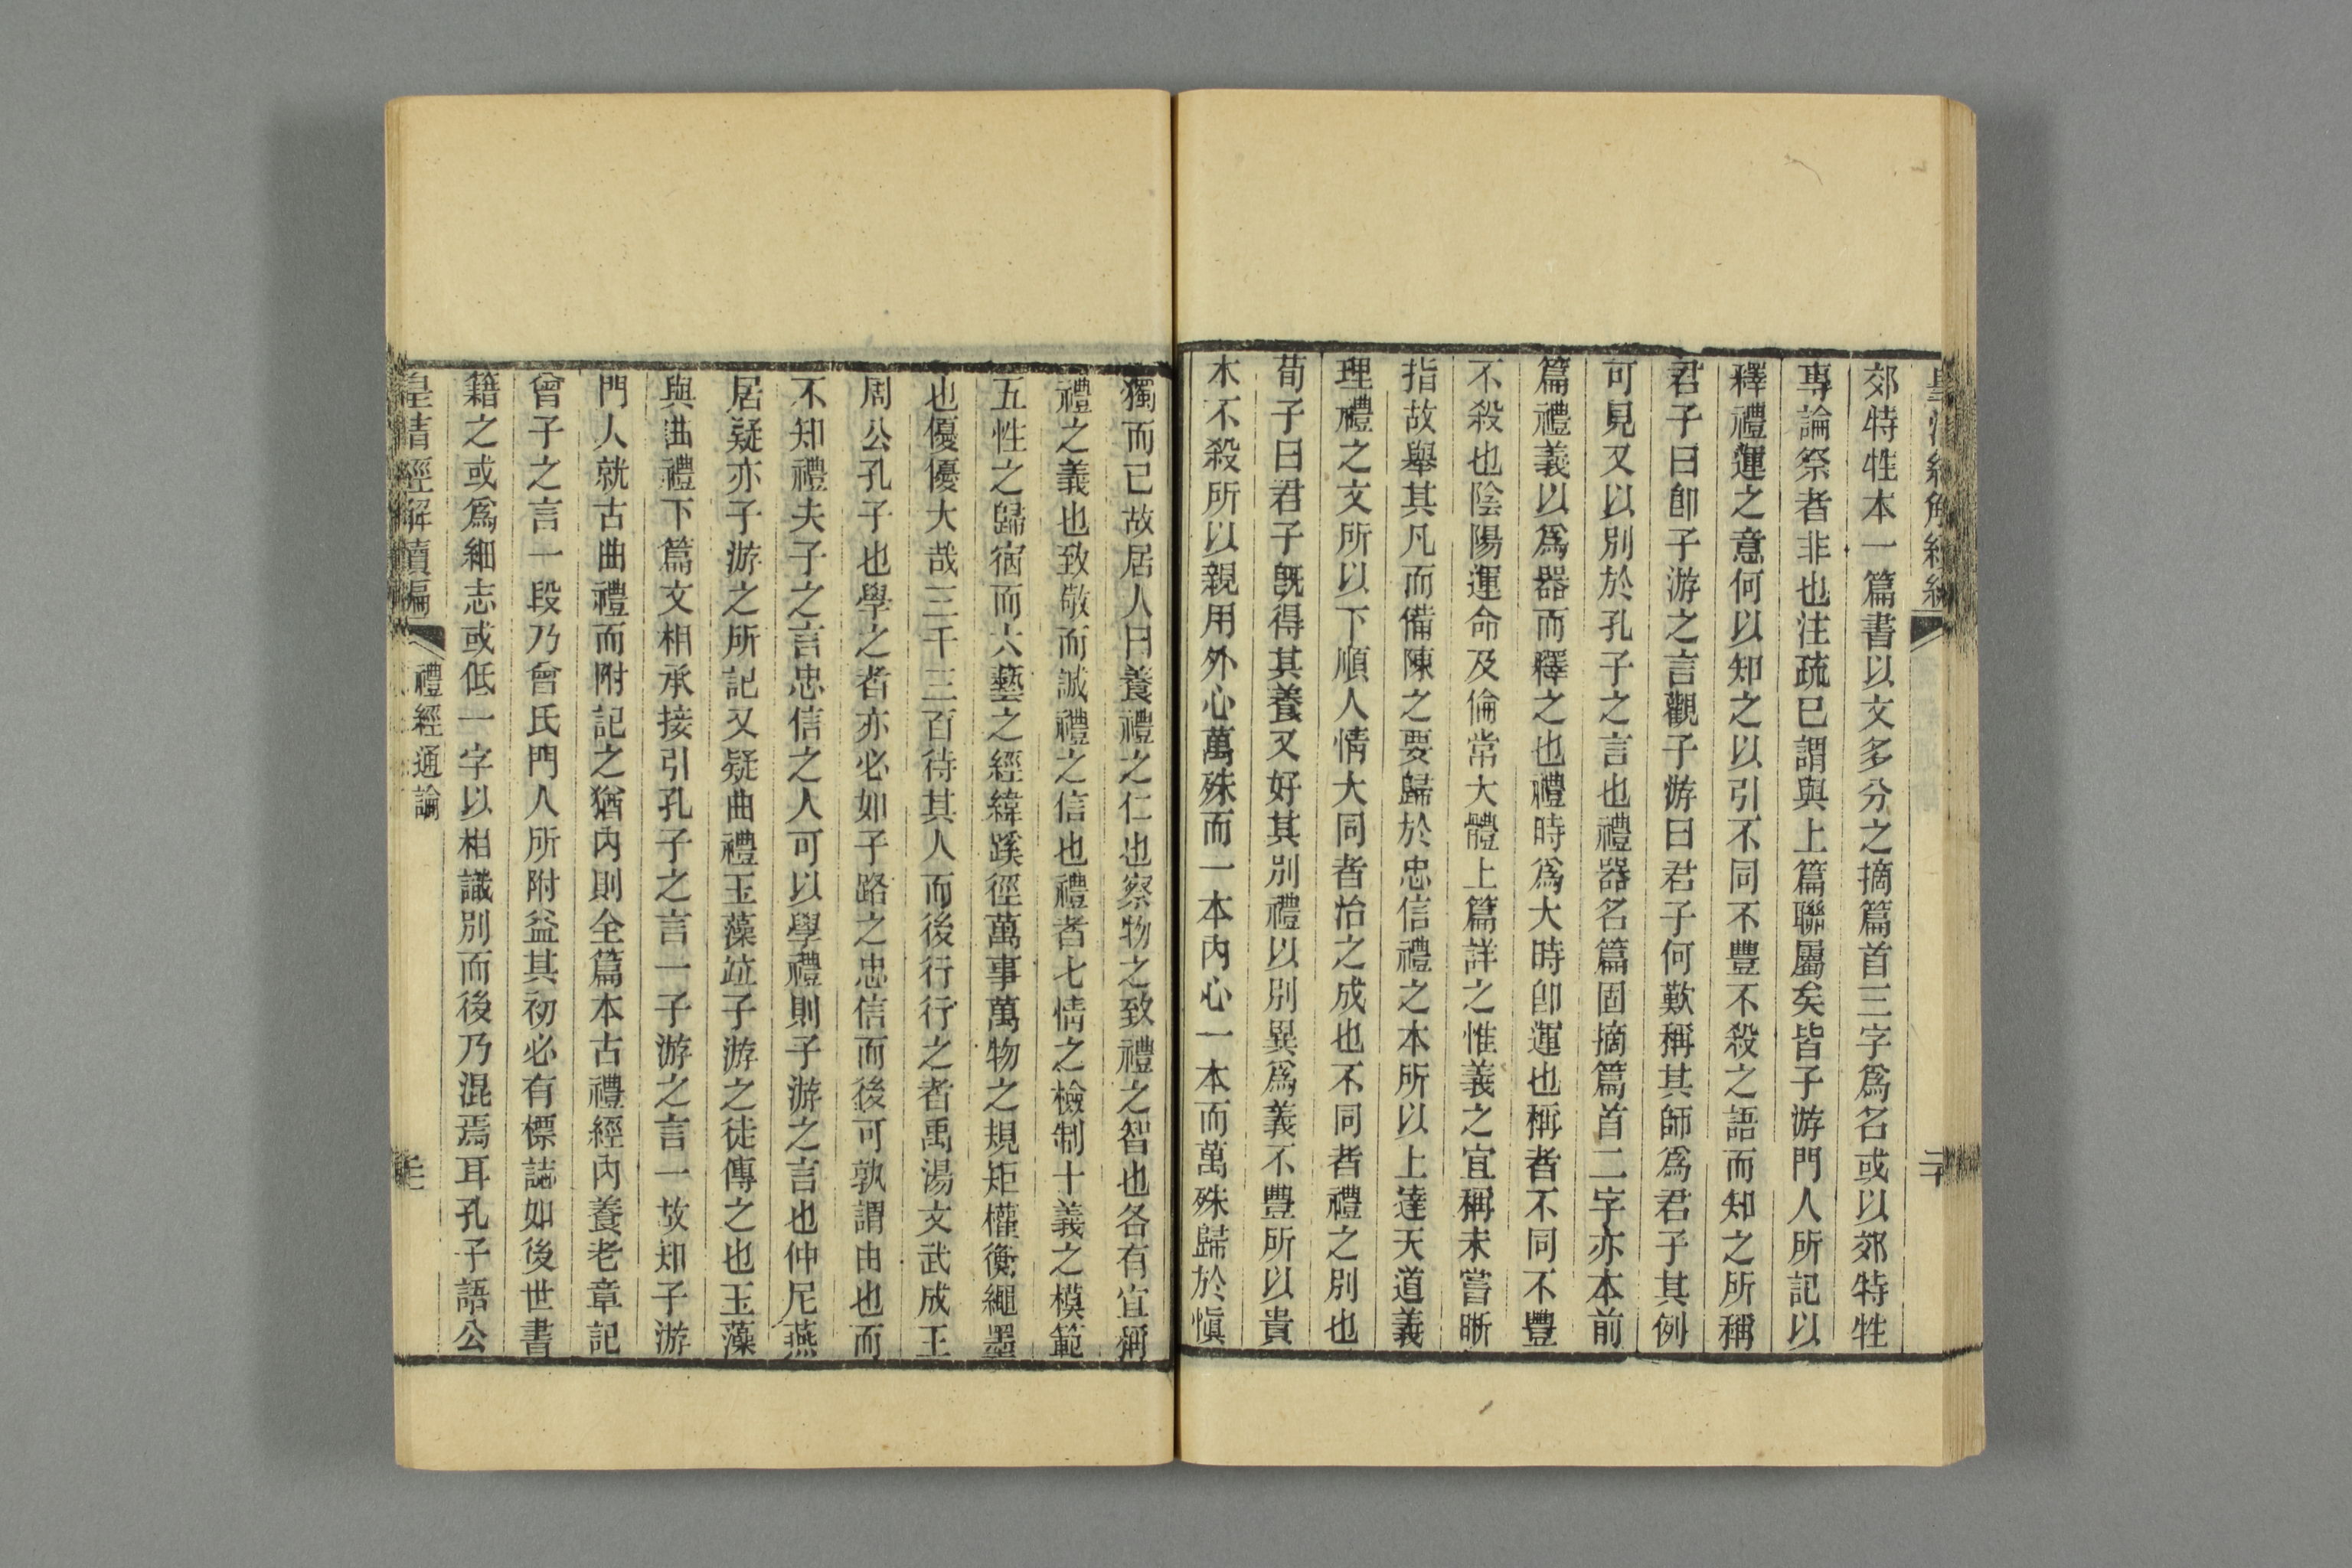 郊特牲本一篇書以文多分之摘篇首三字爲名或以郊特牲
專論祭者非也注疏已謂與上篇聯屬矣皆子游門人所記以
釋禮運之意何以知之以引不同不豐不殺之語而知之所稱
君子曰卽子游之言觀子游曰君子何歎稱其師爲君子其例
可見又以別於孔子之言也禮器名篇固摘篇首二字亦本前
篇禮義以爲器而釋之也禮時爲大時卽運也稱者不同不豐
不殺也陰陽運命及倫常大體上篇詳之惟義之宜稱未嘗晣
指故舉其凡而備陳之要歸於忠信禮之本所以上達天道義
理禮之文所以下順人情大同者治之成也不同者禮之別也
荀子曰君子旣得其養又好其別禮以別異爲義不豐所以貴
本不殺所以親用外心萬殊而一本內心一本而萬殊歸於愼
獨而已故居人曰養禮之仁也察物之致禮之智也各有宜稱
禮之義也致敬而誠禮之信也禮者七情之檢制十義之模範
五性之歸宿而六藝之經緯蹊徑萬事萬物之規矩權衡繩墨
也優優大哉三千三百待其人而後行行之者禹湯文武成王
周公孔子也學之者亦必如子路之忠信而後可孰謂由也而
不知禮夫子之言忠信之人可以學禮則子游之言也仲尼燕
居疑亦子游之所記又疑曲禮玉藻竝子游之徒傳之也玉藻
與曲禮下篇文相承接引孔子之言一子游之言一故知子游
門人就古曲禮而附記之猶內則全篇本古禮經內養老章記
曾子之言一段乃曾氏門人所附益其初必有標誌如後世書
籍之或爲細志或低一字以相識別而後乃混焉耳孔子語公
皇淸經解續編
禮經通論